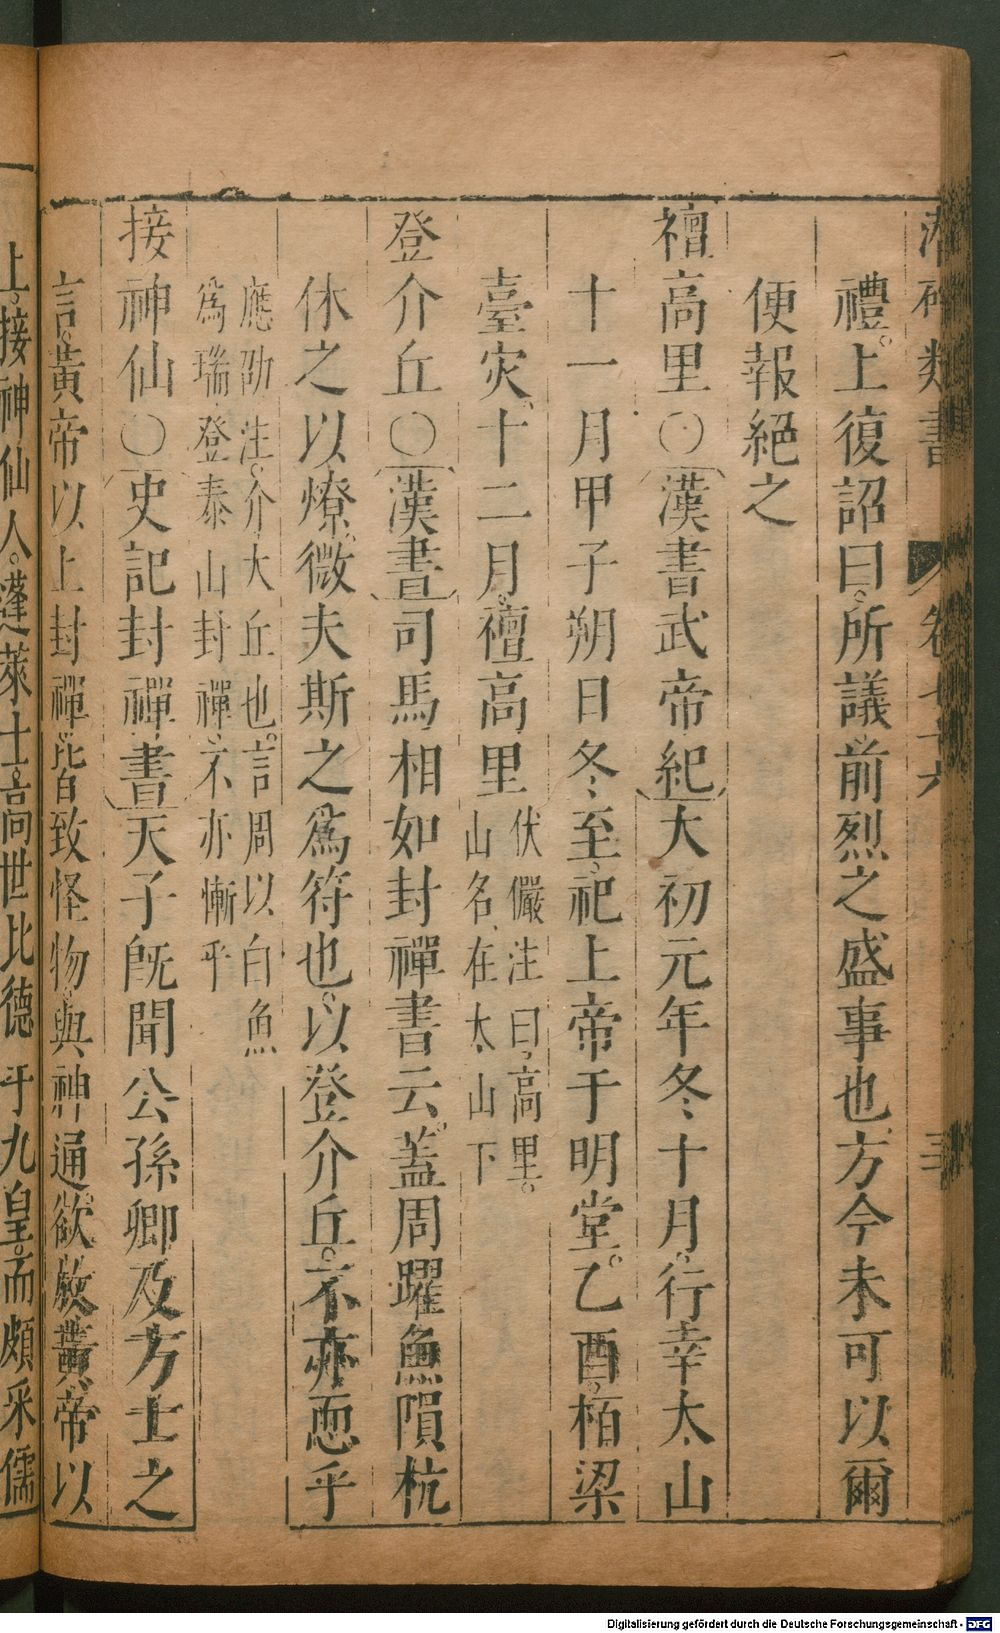 類書 卷七十六 三
禮上復詔曰所議前烈之盛事也方今未可以爾
便報絕之
禮高里〇漢書武帝紀大初元年冬十月行幸太山
十一月甲子朔日冬至祀上帝于明堂乙酉栢梁
臺灾十二月禮高里
伏儼注曰高里
山名在太山下
登介丘〇漢書司馬相如封禪書云蓋周躍魚隕杭
休之以燎微夫斯之爲符也以登介丘不亦恧乎
應劭注介大丘也言周以白魚
爲瑞登泰山封禪不亦慚乎
接神仙〇史記封禪書天子旣聞公孫卿及方士之
言黃帝以上封禪皆致怪物與神通欲放黃帝以
上接神仙人蓬萊士高世比德于九皇而頗采儒
Digitalisierung gefördert durch die Deutsche Forschungsgemeinschaft - DFG